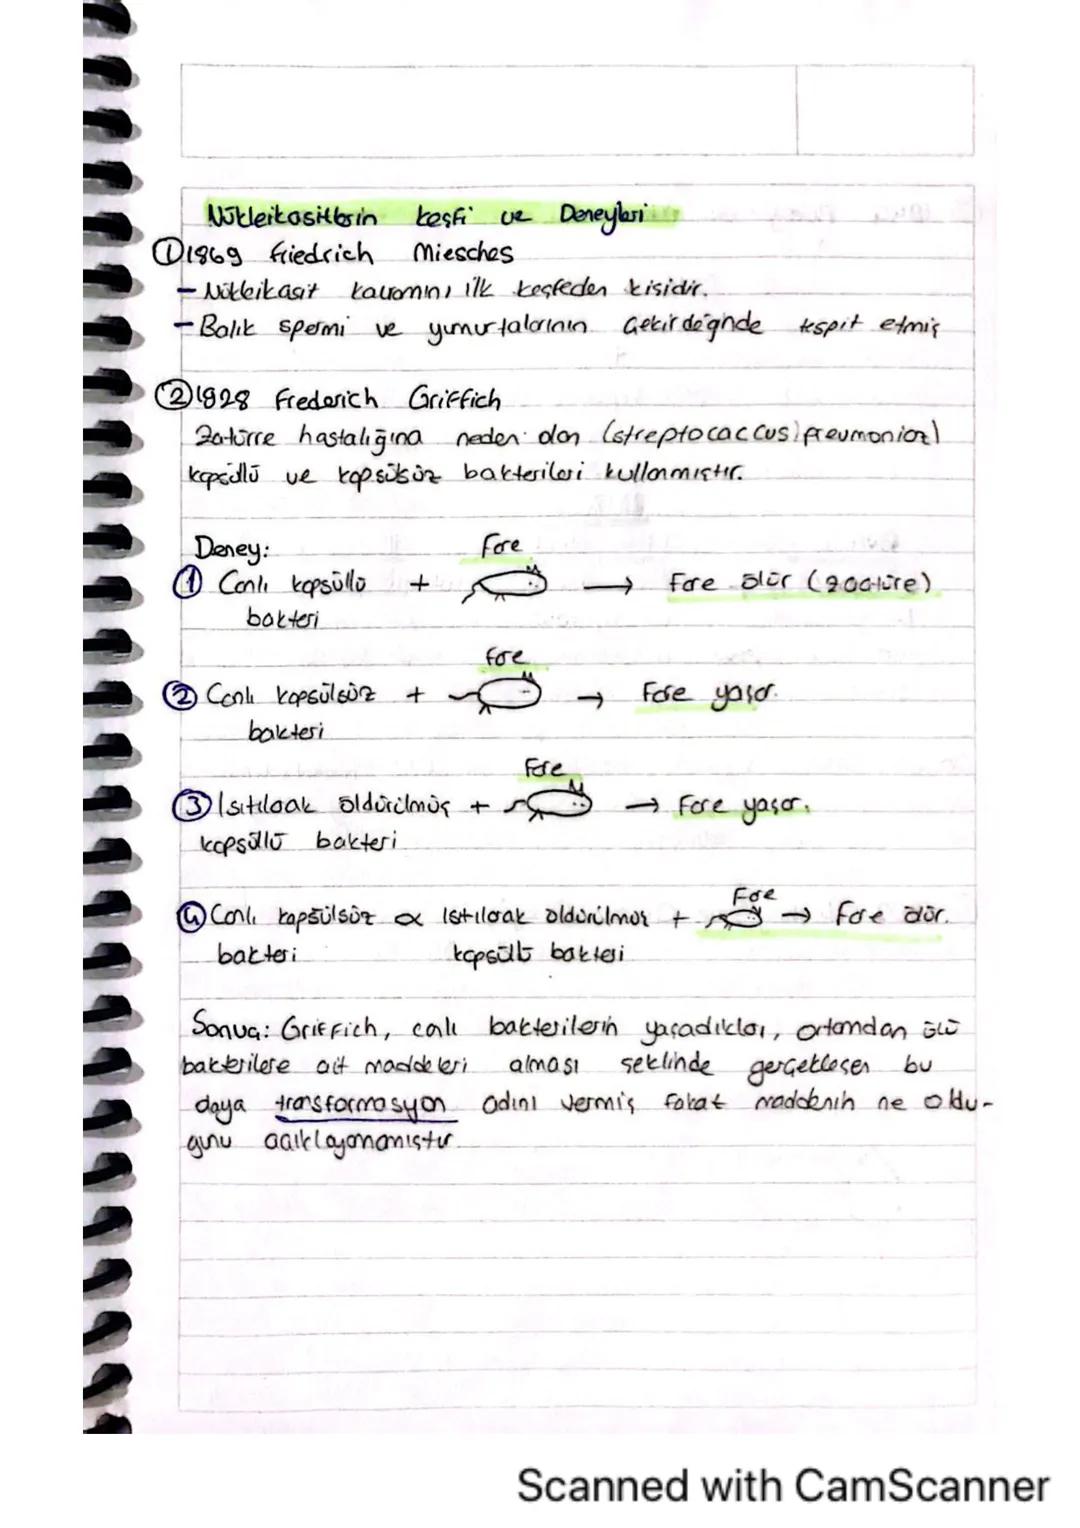 Nükleikasitlerin keşfi ve Deneyleri
① 1869 friedrich Miesches
- Nükleikasit kavramını ilk keşfeden kisidir.
- Balık spermi ve yumurtalarının Çekirdeğnde tespit etmiş
② 1928 Frederich Griffich
Zatürre hastalığına neden olan (streptocaccus pneumoniae)
kapsüllü ve kapsülsüz bakterileri kullanmıştır.
Deney:
Fare
① Canlı kapsüllü + → Fare ölür (zaatüre)
bakteri
Fare
② Canlı kapsülsüz + → Fare yaşar.
bakteri
Fare
③ Isıtılaak öldürülmüş + → Fare yaşar.
kapsüllü bakteri
Fare
④ Canlı kapsülsüz ve Isıtılarak öldürülmüş + → Fare ölür.
bakteri kapsüllü bakteri
Sonuç: Griffich, canlı bakterilerin yaşadıkları, ortamdan ölü
bakterilere ait maddeleri alması seklinde gerçekleşen bu
olaya transformasyon adını vermiş fakat maddenin ne oldu-
ğunu açıklayamamıştır.
Scanned with CamScanner